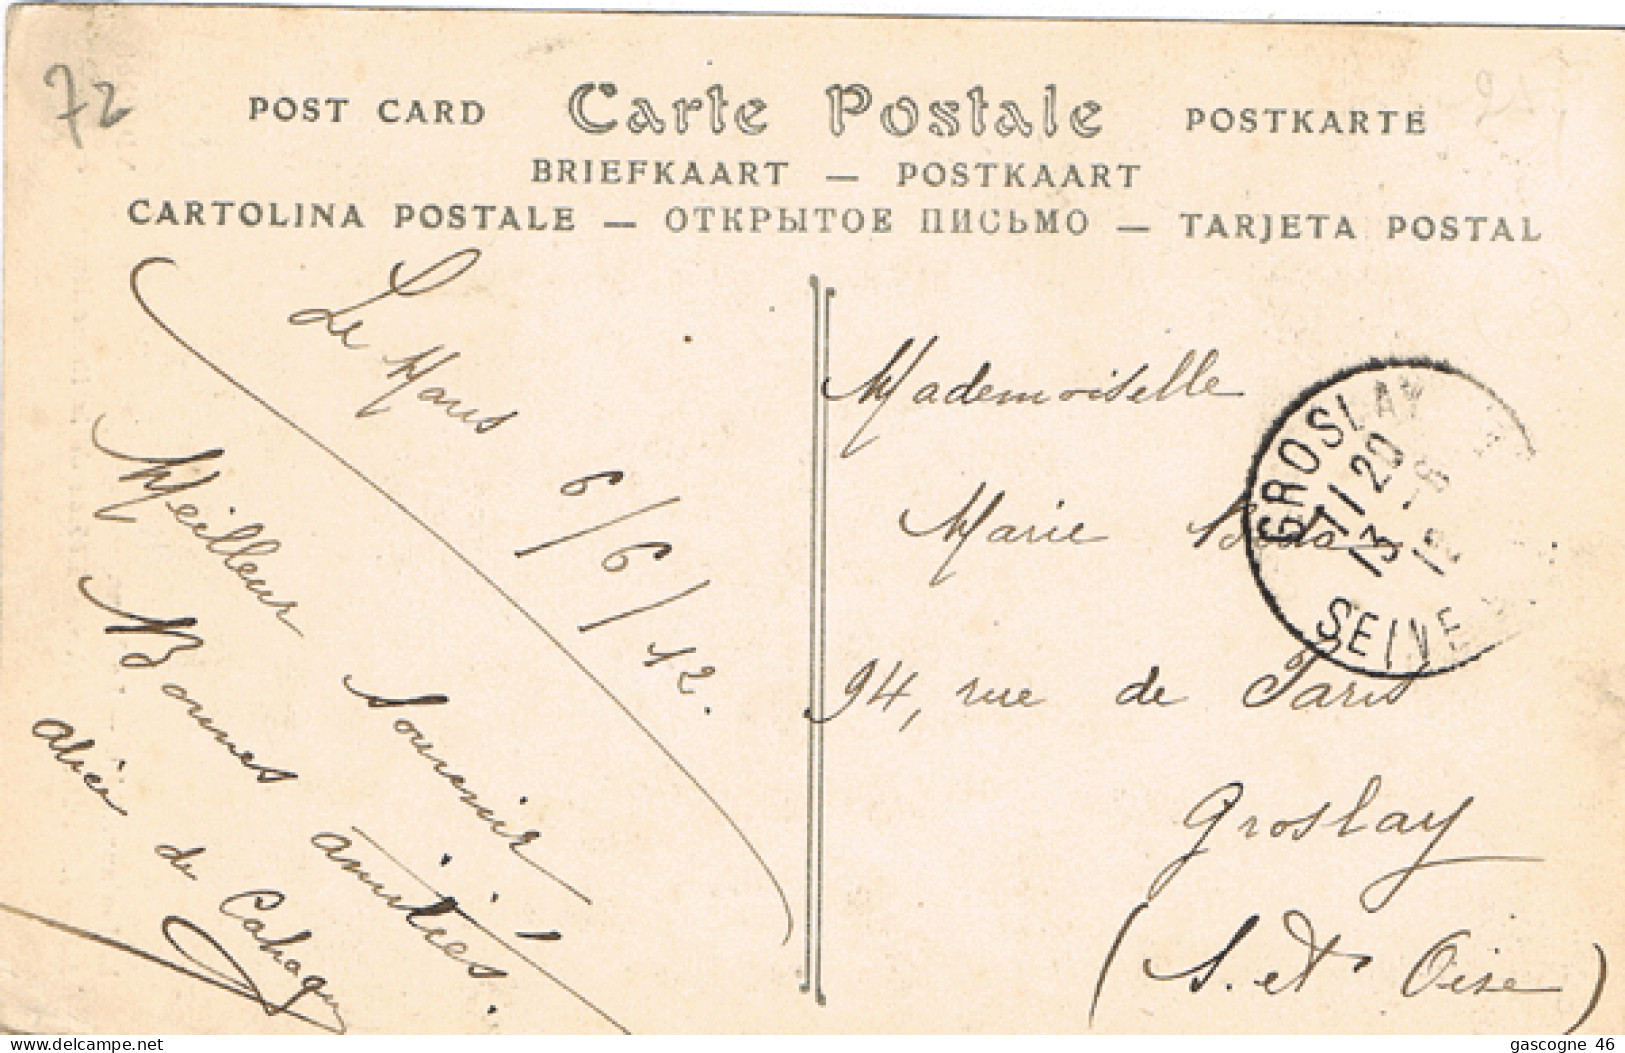 72
POST CARD Carte Postale POSTKARTE
BRIEFKAART — POSTKAART
CARTOLINA POSTALE — ОТКРЫТОЕ ПИСЬМО — TARJETA POSTAL
Le Mans
6/6/12.
Meilleur Souvenir
Bonnes amitiés.
de
Mademoiselle
Marie
94, rue de Paris
Groslay
(S. et Oise)
GROSLAY
11 20
13 - 6
12
SEINE
delcampe.net
gascogne 46